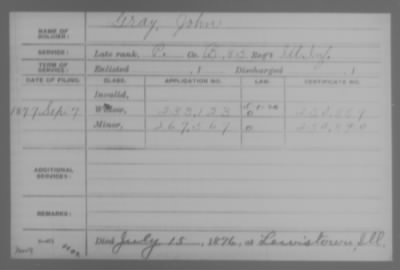 NAME OF SOLDIER: Gray, John
SERVICE: Late rank, P. Co. B, 85 Reg't Ill. Inf.
TERM OF SERVICE: Enlisted , 1 Discharged , 1
DATE OF FILING. CLASS. APPLICATION NO. LAW. CERTIFICATE NO.
Invalid,
1877 Sep. 7 Widow,
Minor, 267,567
ADDITIONAL SERVICES:
REMARKS:
Died July 15, 1876, at Lewistown, Ill.